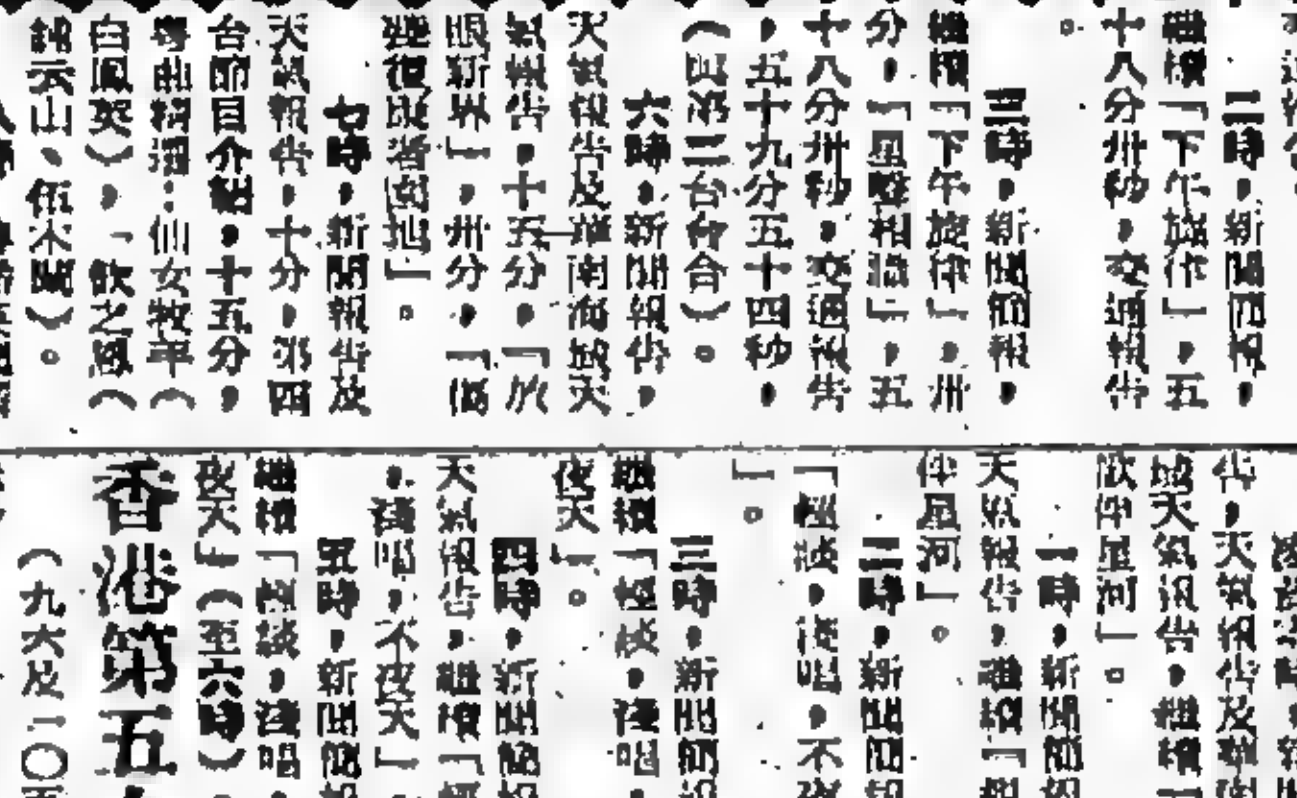 二時，新聞簡報，
繼續「下午旋律」，五
十八分卅秒，交通報告
。
三時，新聞簡報，
繼續「下午旋律」，卅
分，「星聲相」，五
十八分卅秒，交通報告
，五十九分五十四秒，
（與第二台合）。
六時，新聞報告，
天氣報告及華南海域天
氣報告，十五分，「放
眼新界」，卅分，「
」。
七時，新聞報告及
天氣報告，十分，第四
台節目介紹，十五分，
粵曲精選：仙女牧羊（
白鳳英），「（
鍾云山、伍木蘭）。
告，天氣報告及華南
域天氣報告，繼續
伴星河」。
一時，新聞簡報
天氣報告，繼續「
伴星河」。
二時，新聞簡報
「輕談，淺唱，不夜
」。
三時，新聞簡報
繼續「輕談，淺唱
夜天」。
四時，新聞簡報
天氣報告，繼續「輕
，淺唱，不夜天」
五時，新聞簡報
繼續「輕談，淺唱
夜天」（至六時）。
香港第五
（九六及一〇